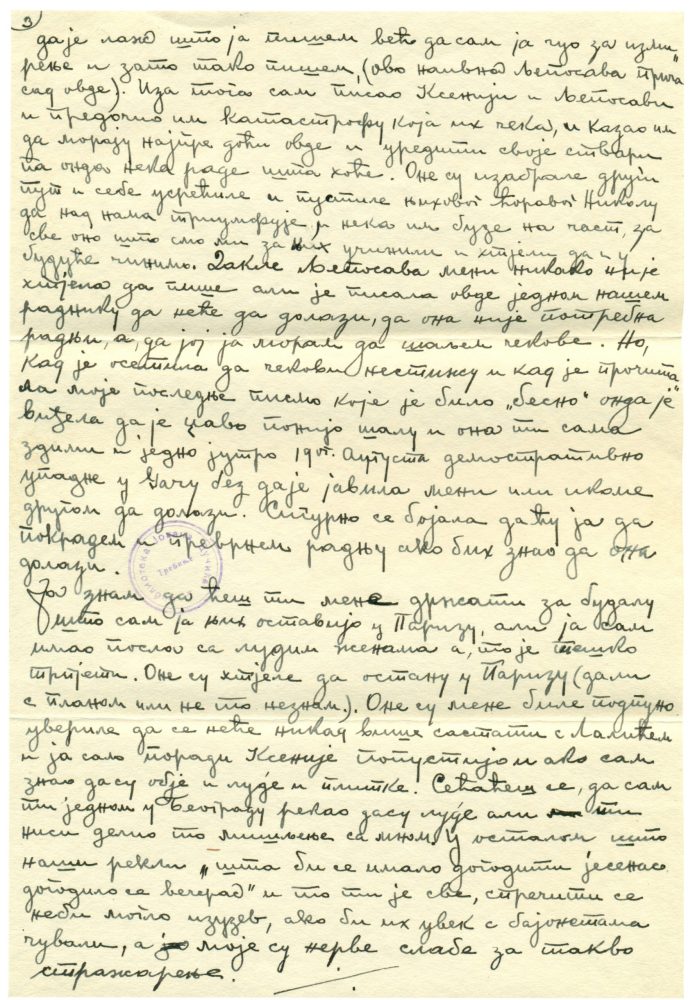 3
да је лаж што ја пишем већ да сам ја чуо за изми
рење и зато тако пишем, (ово наивна Љепосава прича
сад овде). Иза тога сам писао Ксенији и Љепосави
и предочио им катастрофу која их чека, и казао им
да морају најпре доћи овде и уредити своје ствари
па онда нека раде шта хоће. Оне су изабрале други
пут и себе усрећиле и пустиле њиховог ћоравог Николу
да над нама триумфује, и нека им буде на част, за
све оно што смо ми за њих учинили и хтјели да и у
будуће чинимо. Дакле Љепосава мени никако није
хтјела да пише али је писала овде једном нашем
раднику да неће да долази, да она није потребна
радњи, а, да јој ја морам да шаљем чекове. Но,
кад је осетила да чекови нестижу и кад је прочита
ла моје последње писмо које је било „бесно“ онда је
виђела да је ђаво понијо шалу и она ти сама
здими и једно јутро 19ог Августа демостративно
упадне у Гачу без да је јавила мени или икоме
другом да долази. Сигурно се бојала да ћу ја да
покрадем и преврнем радњу ако бих знао да она
долази.
Ја знам да ћеш ти мене држати за будалу
што сам ја њих оставијо у Паризу, али ја сам
имао посла са лудим женама а, то је тешко
трпјети. Оне су хтјеле да остану у Паризу (дали
с планом или не то незнам). Оне су мене биле потпуно
увериле да се неће никад више састати с Лалићем
и ја само поради Ксеније попустијо и ако сам
знао да су обје и луде и плитке. Сећаћеш се, да сам
ти једном у Београду рекао да су луђе али ти
ниси делио то мишљење самном. У осталом што
наши рекли „шта би се имало догодити јесенас
догодило се вечерас“ и то ти је све, спречити се
неби могло изузев, ако би их увек с бајонетама
чували, а моје су нерве слабе за такво
стражарење.
библиотека
Требиње